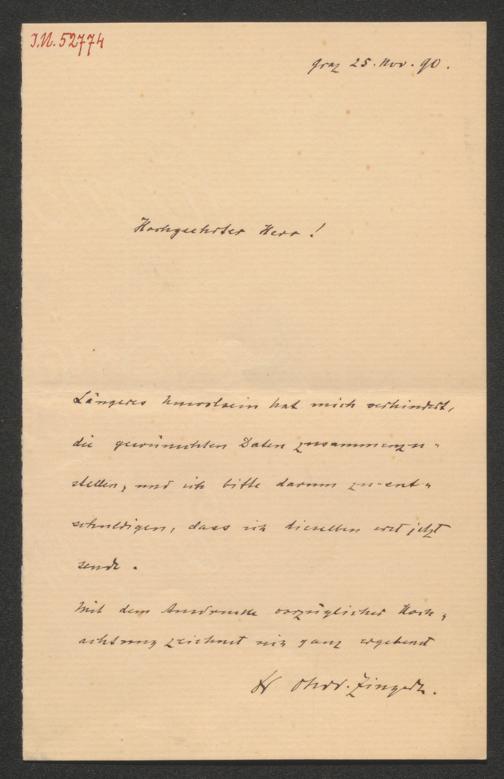 I.N. 52774
Graz 25. Nov. 90.
Hochgeehrter Herr!
Längeres Unwolsein hat mich verhindert,
die gewünschten Daten zusammenzu-
stellen, und ich bitte darum zu ent-
schuldigen, dass ich dieselben erst jetzt
sende.
Mit dem Ausdrucke vorzüglicher Hoch-
achtung zeichnet sich ganz ergebenst
Zingerle.